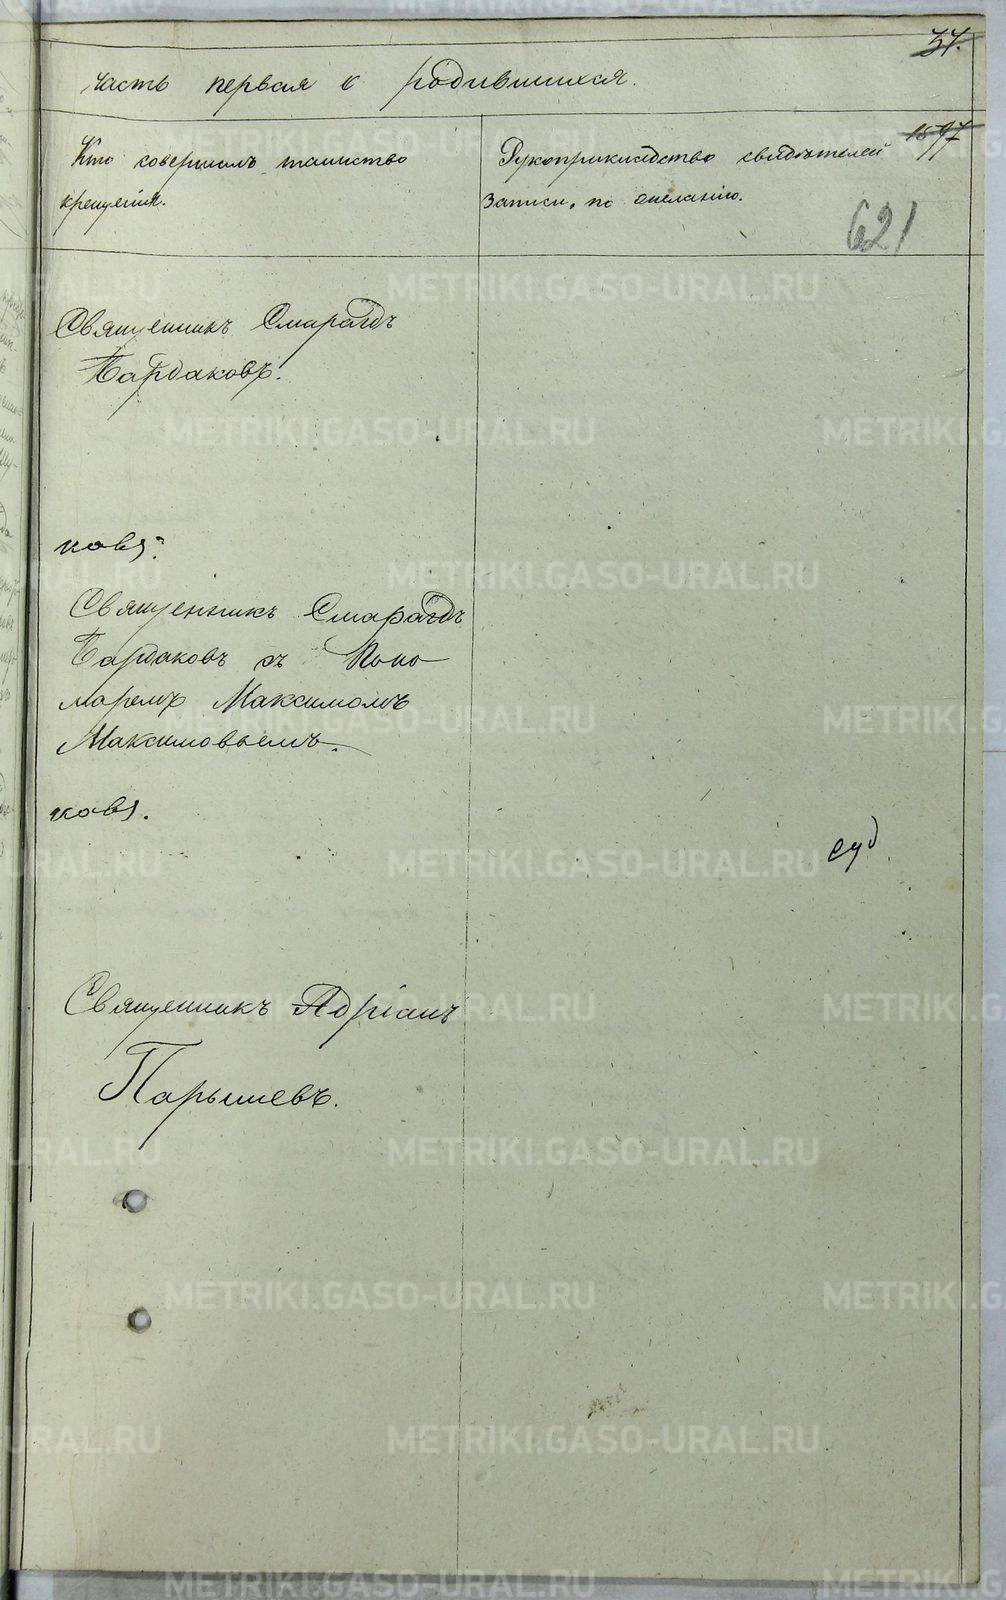 37.
часть первая о родившихся.
1597
Кто совершилъ таинство
крещенія.
Рукоприкладство свидѣтелей
записи, по желанію.
621
Священникъ Смарагдъ
Бардаковъ.
ковъ.
Священникъ Смарагдъ
Бардаковъ съ Поно
маремъ Максимомъ
Максимовымъ.
ковъ.
Священникъ Адріанъ
Парышевъ.
METRIKI.GASO-URAL.RU